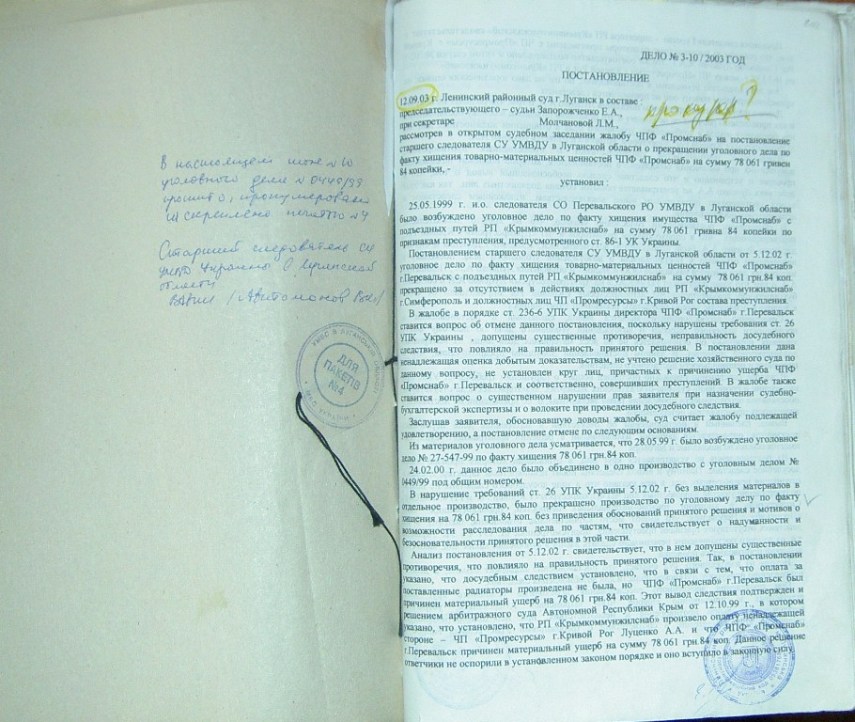 В настоящем томе №10
уголовного дела №0449/99
прошито, пронумеровано
и скреплено печатью №4
Старший следователь СУ
УМВД Украины в Луганской
области
ДЛЯ
ПАКЕТОВ
№4
ДЕЛО № 3-10 / 2003 ГОД
ПОСТАНОВЛЕНИЕ
12.09.03 г. Ленинский районный суд г.Луганск в составе :
прокурор?
председательствующего – судьи Запорожченко Е.А.,
при секретаре Молчановой Л.М.,
рассмотрев в открытом судебном заседании жалобу ЧПФ «Промснаб» на постановление
старшего следователя СУ УМВДУ в Луганской области о прекращении уголовного дела по
факту хищения товарно-материальных ценностей ЧПФ «Промснаб» на сумму 78 061 гривен
84 копейки, -
установил :
25.05.1999 г. и.о. следователя СО Перевальского РО УМВДУ в Луганской области
было возбуждено уголовное дело по факту хищения имущества ЧПФ «Промснаб» с
подъездных путей РП «Крымкоммунжилснаб» на сумму 78 061 гривна 84 копейки по
признакам преступления, предусмотренного ст. 86-1 УК Украины.
Постановлением старшего следователя СУ УМВДУ в Луганской области от 5.12.02 г.
уголовное дело по факту хищения товарно-материальных ценностей ЧПФ «Промснаб»
г.Перевальск с подъездных путей РП «Крымкоммунжилснаб» на сумму 78 061 грн.84 коп.
прекращено за отсутствием в действиях должностных лиц РП «Крымкоммунжилснаб»
г.Симферополь и должностных лиц ЧП «Промресурсы» г.Кривой Рог состава преступления.
В жалобе в порядке ст. 236-6 УПК Украины директора ЧПФ «Промснаб» г.Перевальск
ставится вопрос об отмене данного постановления, поскольку нарушены требования ст. 26
УПК Украины , допущены существенные противоречия, неправильность досудебного
следствия, что повлияло на правильность принятого решения. В постановлении дана
ненадлежащая оценка добытым доказательствам, не учтено решение хозяйственного суда по
данному вопросу, не установлен круг лиц, причастных к причинению ущерба ЧПФ
«Промснаб» г.Перевальск и соответственно, совершивших преступлений. В жалобе также
ставится вопрос о существенном нарушении прав заявителя при назначении судебно-
бухгалтерской экспертизы и о волоките при проведении досудебного следствия.
Заслушав заявителя, обосновавшую доводы жалобы, суд считает жалобу подлежащей
удовлетворению, а постановление отмене по следующим основаниям.
Из материалов уголовного дела усматривается, что 28.05.99 г. было возбуждено уголовное
дело № 27-547-99 по факту хищения 78 061 грн.84 коп.
24.02.00 г. данное дело было объединено в одно производство с уголовным делом №
0449/99 под общим номером.
В нарушение требований ст. 26 УПК Украины 5.12.02 г. без выделения материалов в
отдельное производство, было прекращено производство по уголовному делу по факту
хищения на 78 061 грн.84 коп. без приведения обоснований принятого решения и мотивов о
возможности расследования дела по частям, что свидетельствует о надуманности и
безосновательности принятого решения в этой части.
Анализ постановления от 5.12.02 г. свидетельствует, что в нем допущены существенные
противоречия, что повлияло на правильность принятого решения. Так, в постановлении
указано, что досудебным следствием установлено, что в связи с тем, что оплата за
поставленные радиаторы произведена не была, но ЧПФ «Промснаб» г.Перевальск был
причинен материальный ущерб на 78 061 грн.84 коп. Этот вывод следствия подтвержден и
решением арбитражного суда Автономной Республики Крым от 12.10.99 г., в котором
указано, что установлено, что РП «Крымкоммунжилснаб» произвело оплату ненадлежащей
стороне – ЧП «Промресурсы» г.Кривой Рог Луценко А.А. и что ЧПФ «Промснаб»
г.Перевальск причинен материальный ущерб на сумму 78 061 грн.84 коп. Данное решение
ответчики не оспорили в установленном законом порядке и оно вступило в законную силу.